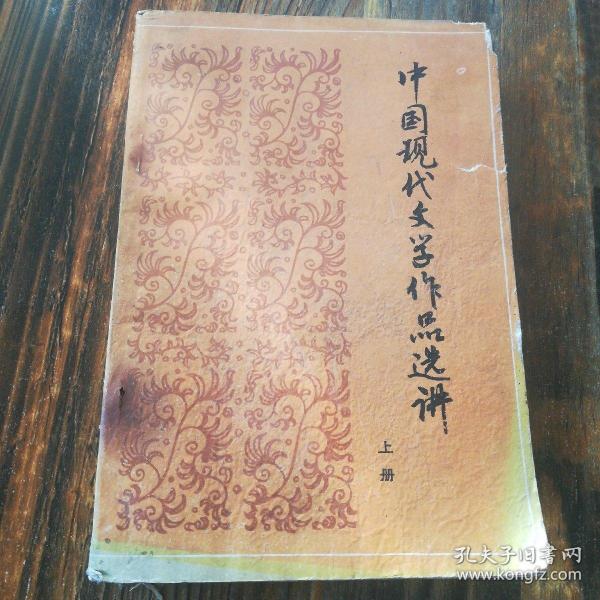 中国现代文学作品选讲
上册
孔夫子旧书网
www.kongfz.com